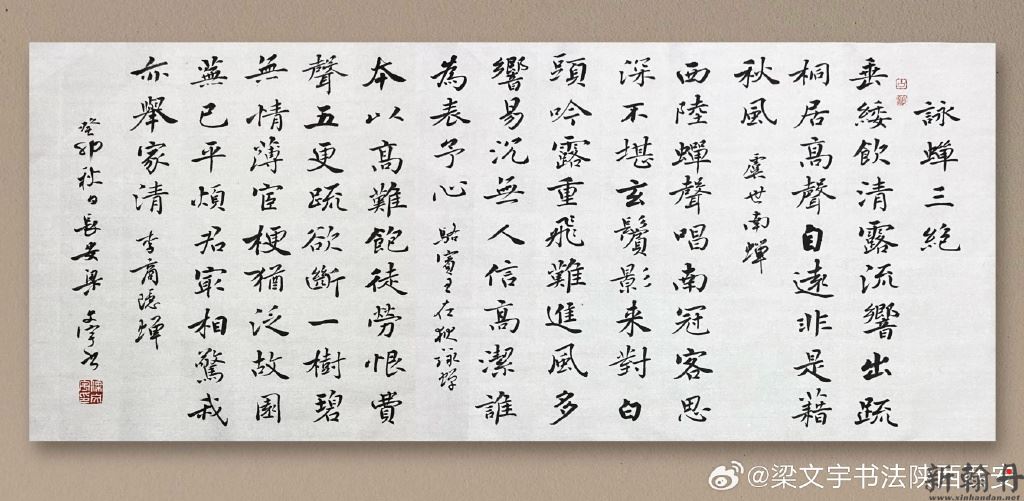 詠蝉三絶
垂緌飲清露流響出疏
桐居高聲自遠非是藉
秋風 虞世南蝉
西陸蟬聲唱南冠客思
深不堪玄鬢影来對白
頭吟露重飛難進風多
響易沉無人信高潔誰
為表予心 駱賓王在狱詠蝉
本以高難飽徒勞恨費
聲五更疏欲斷一樹碧
無情薄宦梗猶泛故園
蕪已平煩君寂相驚我
亦舉家清 李商隐蝉
癸卯秋日長安梁文宇书
@梁文宇书法陕西
新翰丹
www.xinhandan.net